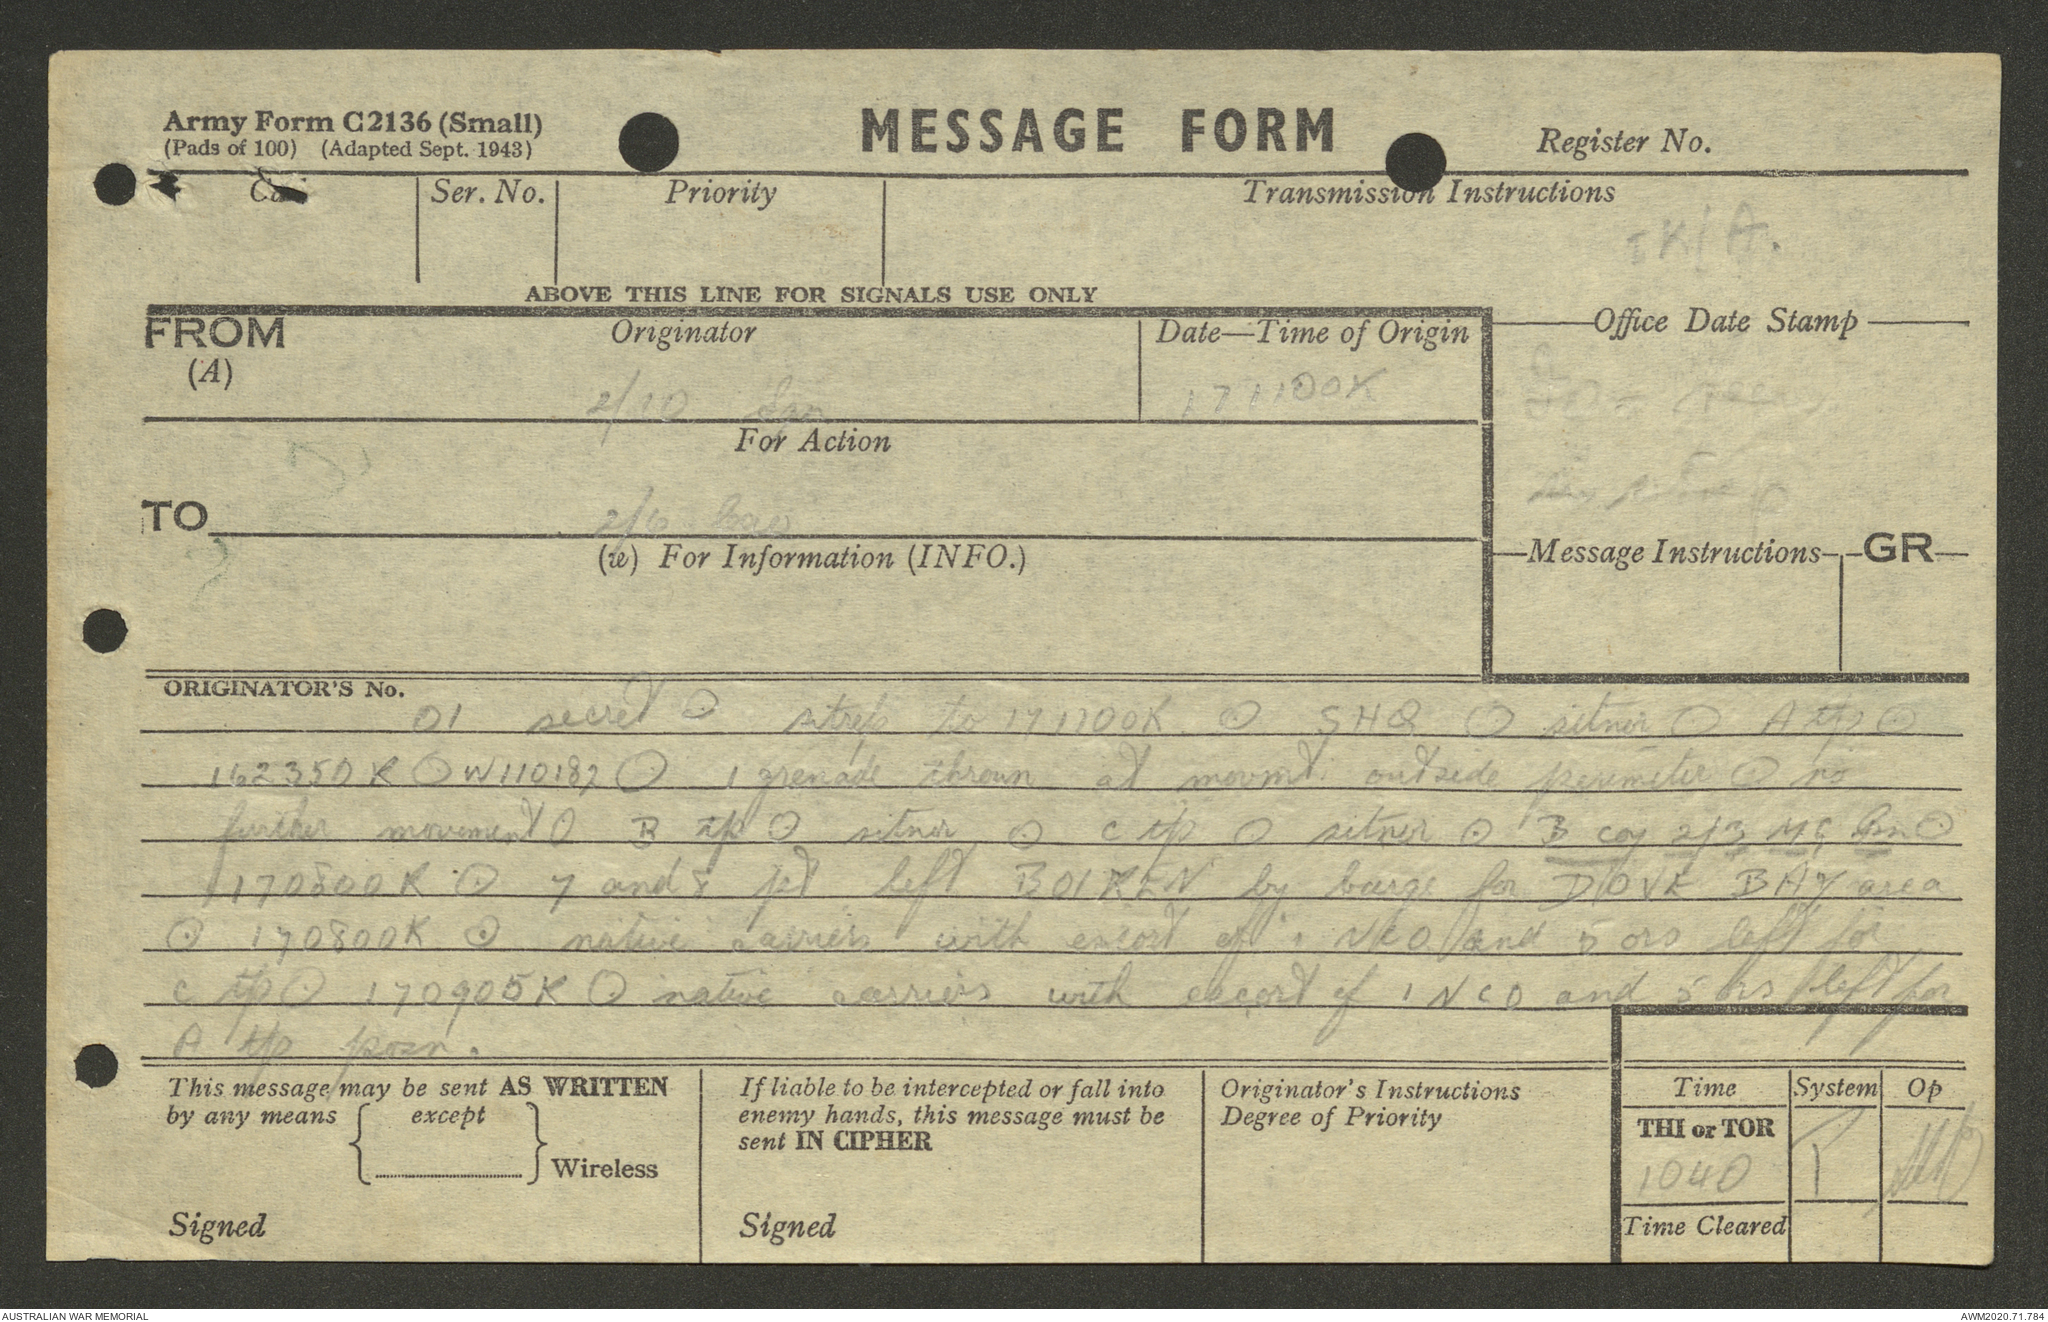 Army Form C2136 (Small)
(Pads of 100) (Adapted Sept. 1943)
MESSAGE FORM
Register No.
Call Ser. No. Priority Transmission Instructions
IK/A.
ABOVE THIS LINE FOR SIGNALS USE ONLY
FROM
(A)
Originator
2/10 Sqn
Date—Time of Origin
171100K
Office Date Stamp
For Action
TO
2/6
(w) For Information (INFO.)
Message Instructions GR
ORIGINATOR'S No.
01 secret ⊙ sitrep to 171100K ⊙ SHQ ⊙ sitnor ⊙ A tp ⊙
162350K ⊙ W110182 ⊙ 1 grenade thrown at movmt outside perimeter ⊙ no
further movement ⊙ B tp ⊙ sitnor ⊙ C tp ⊙ sitnor ⊙ B coy 2/3 MG Bn ⊙
170800K ⊙ 7 and 8 pl left BOIKEN by barge for DOVE BAY area
⊙ 170800K ⊙ native carriers with escort of 1 NCO and 5 ors left for
C tp ⊙ 170905K ⊙ native carriers with escort of 1 NCO and 5 ors left for
A tp posn.
This message may be sent AS WRITTEN
by any means except
Wireless
Signed
If liable to be intercepted or fall into
enemy hands, this message must be
sent IN CIPHER
Signed
Originator's Instructions
Degree of Priority
Time System Op
THI or TOR
1040 T
Time Cleared
AUSTRALIAN WAR MEMORIAL
AWM2020.71.784